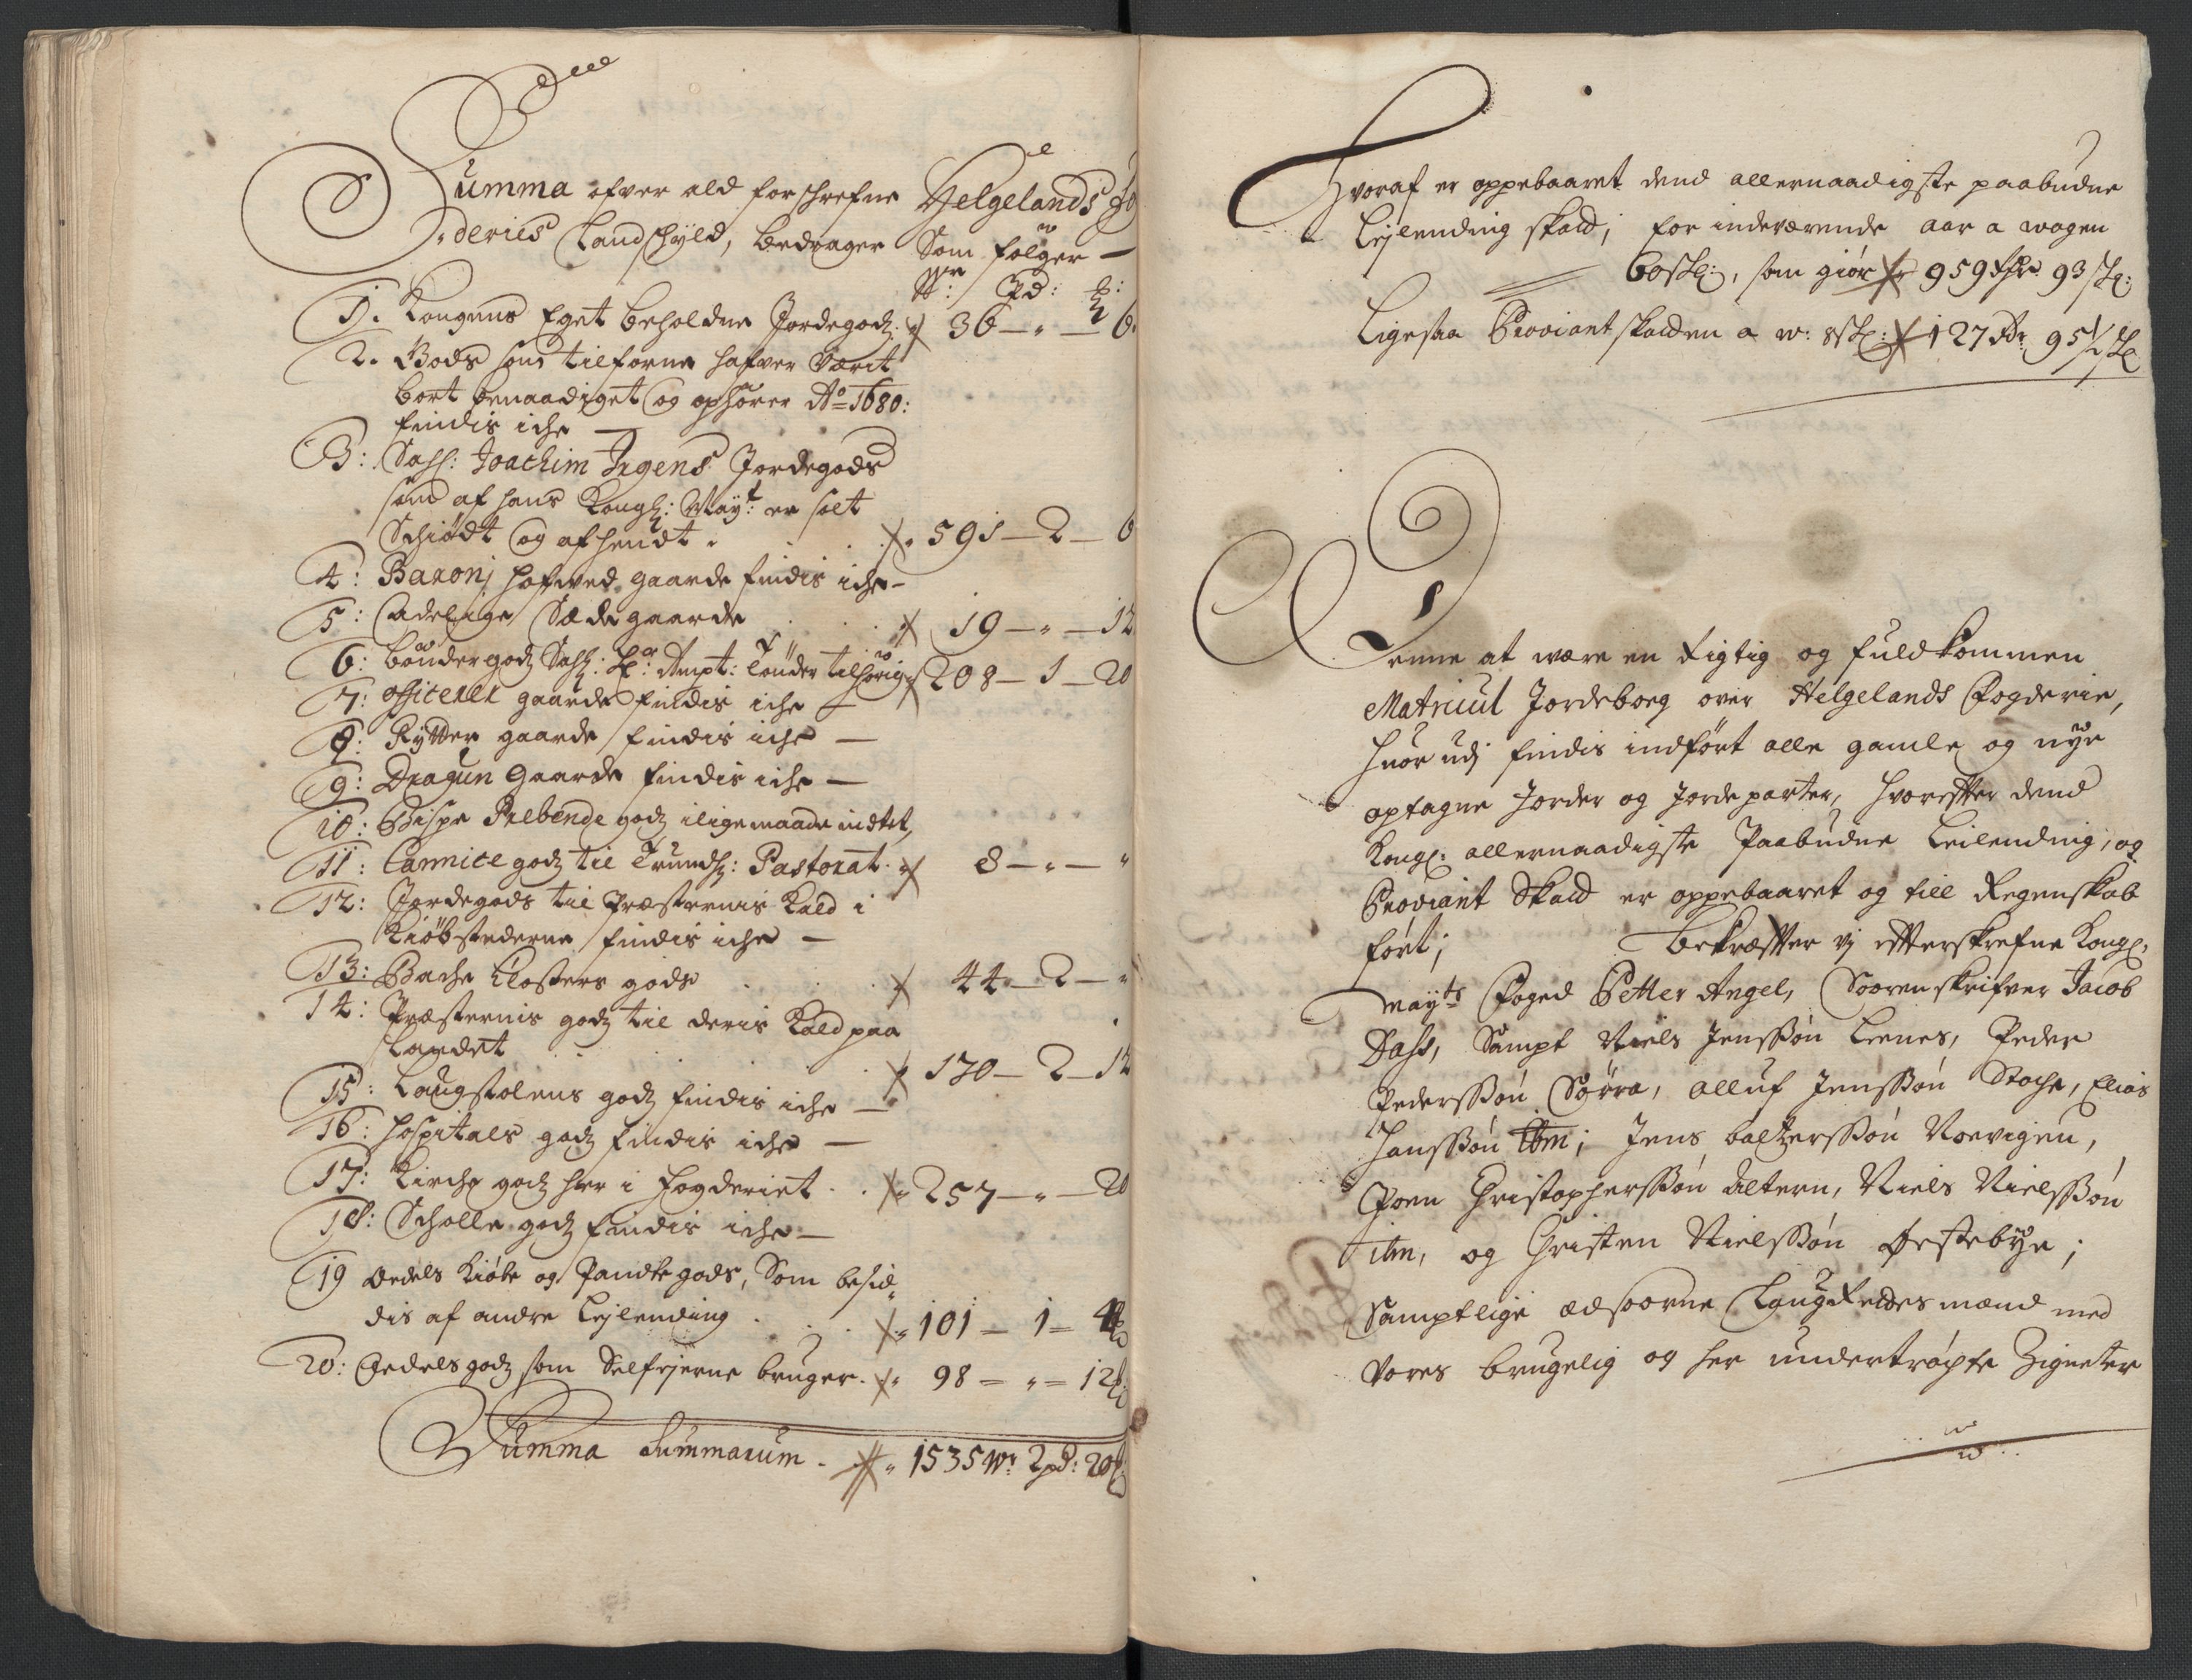 Summa ofver ald forschrefne Helgelands Fo
deries Landschyld, bedrager Som følger —
W: Pd: ℔:
1. Kongens Eget beholdne Jordegodz. 36 — " — 6
2. Gods som tilforne hafver værit
bort benaadiget og ophører Ao 1680:
findis iche —
3: Sahl: Joachim Irgens Jordegods
som af hans Kongl: Mayt: er solt
Schiødt og afhendt . 591 — 2 — 6
4: Baronj hofved gaarde findis iche —
5: Adelige Sæde gaarde . . . 19 — " — 12
6: bøndergodz Sahl: Hr: Ampt: Tønder tilhørig 208 — 1 — 20
7: officerer gaarde findis iche —
8: Rytter gaarde findis iche —
9: Dragun Gaarde findis iche —
10: Bispe Prebende godz ilige maade indtet,
11: Cannice godz til Trundh: Pastorat. 8 — " — "
12: Jordegods til Præsternis Kald i
Kiøbstederne findis iche —
13: Bache Closters gods . . . 44 — 2 — "
14: Præsternis godz til deris Kald paa
Landet . . . 170 — 2 — 12
15: Laugstolens godz findis iche —
16: Hospitals godz findis iche —
17: Kirche godz her i Fogderiet . . 257 — " — 20
18: Scholle godz findis iche —
19 Oedels Kiøbe og Pandte gods, Som besid
dis af andre Lejlending . . . 101 — 1 = 4
20: Oedels godz som Selfejerne bruger. 98 = " = 12
Summa Summarum . 1535 W: 2 pd: 20
Hvoraf er oppebaaret dend allernaadigste paabudne
Lejlending skald; for indeværende aar a wogen
60 sk:, som giør 959 Rdr 93 sk:
Ligesaa Proviantskalden a w: 8 sk: 127 Rdr 95½ sk
Denne at være en Rigtig og fuldkommen
Matricul Jordebog over Helgelands Fogderie,
huor udj findis indført alle gamle og nye
optagne Jorder og Jordeparter, hvorefter dend
Kongl: allernaadigste Paabudne Leilending, og
Proviant Skald er oppebaaret og till Regenskab
ført; Bekræfter vj efterskrefne Kongl.
mayts Foged Petter Angel, Soorenskrifver Jacob
Dass, Sampt Niels Jenssøn Leenes, Peder
Pederssøn Sørra, Alluf Jenssøn Stoche, Elias
Hanssøn Ibm; Jens baltzerssøn Norvigen,
Poen Christopherssøn Altern, Niels Nielssøn
ibm, og Christen Nielssøn Østebye;
Samptlige æedsoorne Laug Rettes mænd med
vores brugelig og her undertrøchte Zigneter